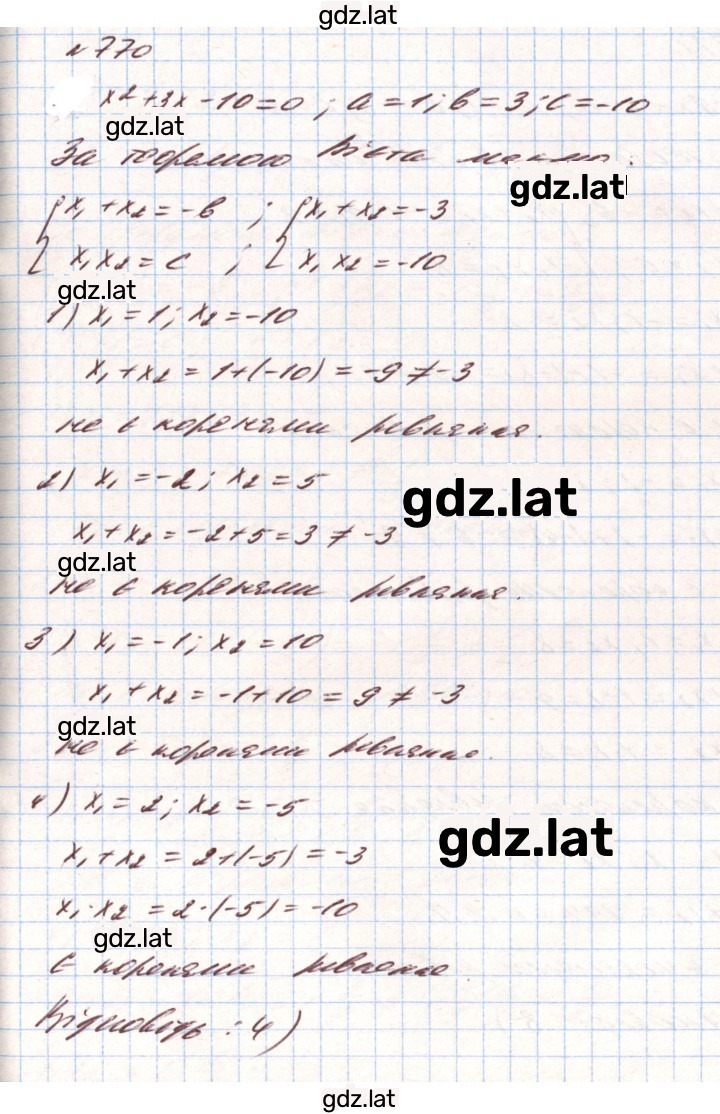 gdz.lat
№770
x² + 3x - 10 = 0 ; a = 1; b = 3; c = -10
gdz.lat
За теоремою Вієта маємо:
gdz.lat
{ x₁ + x₂ = -b ; { x₁ + x₂ = -3
x₁x₂ = c ; x₁x₂ = -10
gdz.lat
1) x₁ = 1; x₂ = -10
x₁ + x₂ = 1 + (-10) = -9 ≠ -3
не є коренями рівняння.
2) x₁ = -2; x₂ = 5
gdz.lat
x₁ + x₂ = -2 + 5 = 3 ≠ -3
gdz.lat
не є коренями рівняння.
3) x₁ = -1; x₂ = 10
x₁ + x₂ = -1 + 10 = 9 ≠ -3
gdz.lat
не є коренями рівняння.
4) x₁ = 2; x₂ = -5
gdz.lat
x₁ + x₂ = 2 + (-5) = -3
x₁ · x₂ = 2 · (-5) = -10
gdz.lat
є коренями рівняння
Відповідь: 4)
gdz.lat